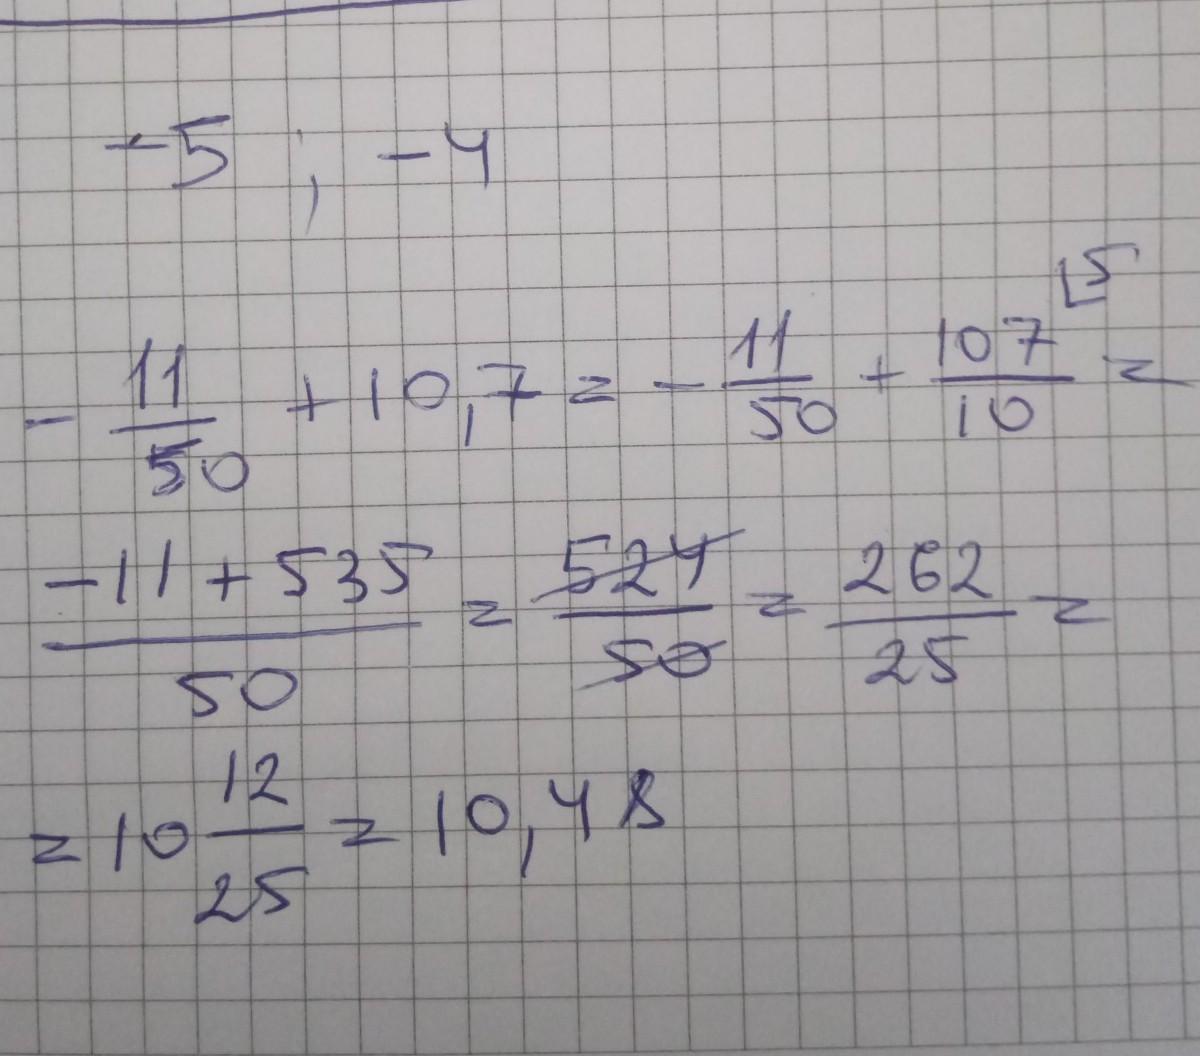 -5 ; -4
- 11/50 + 10,7 = - 11/50 + 107/10 ⌊5 =
(-11 + 535)/50 = 524/50 = 262/25 =
= 10 12/25 = 10,48